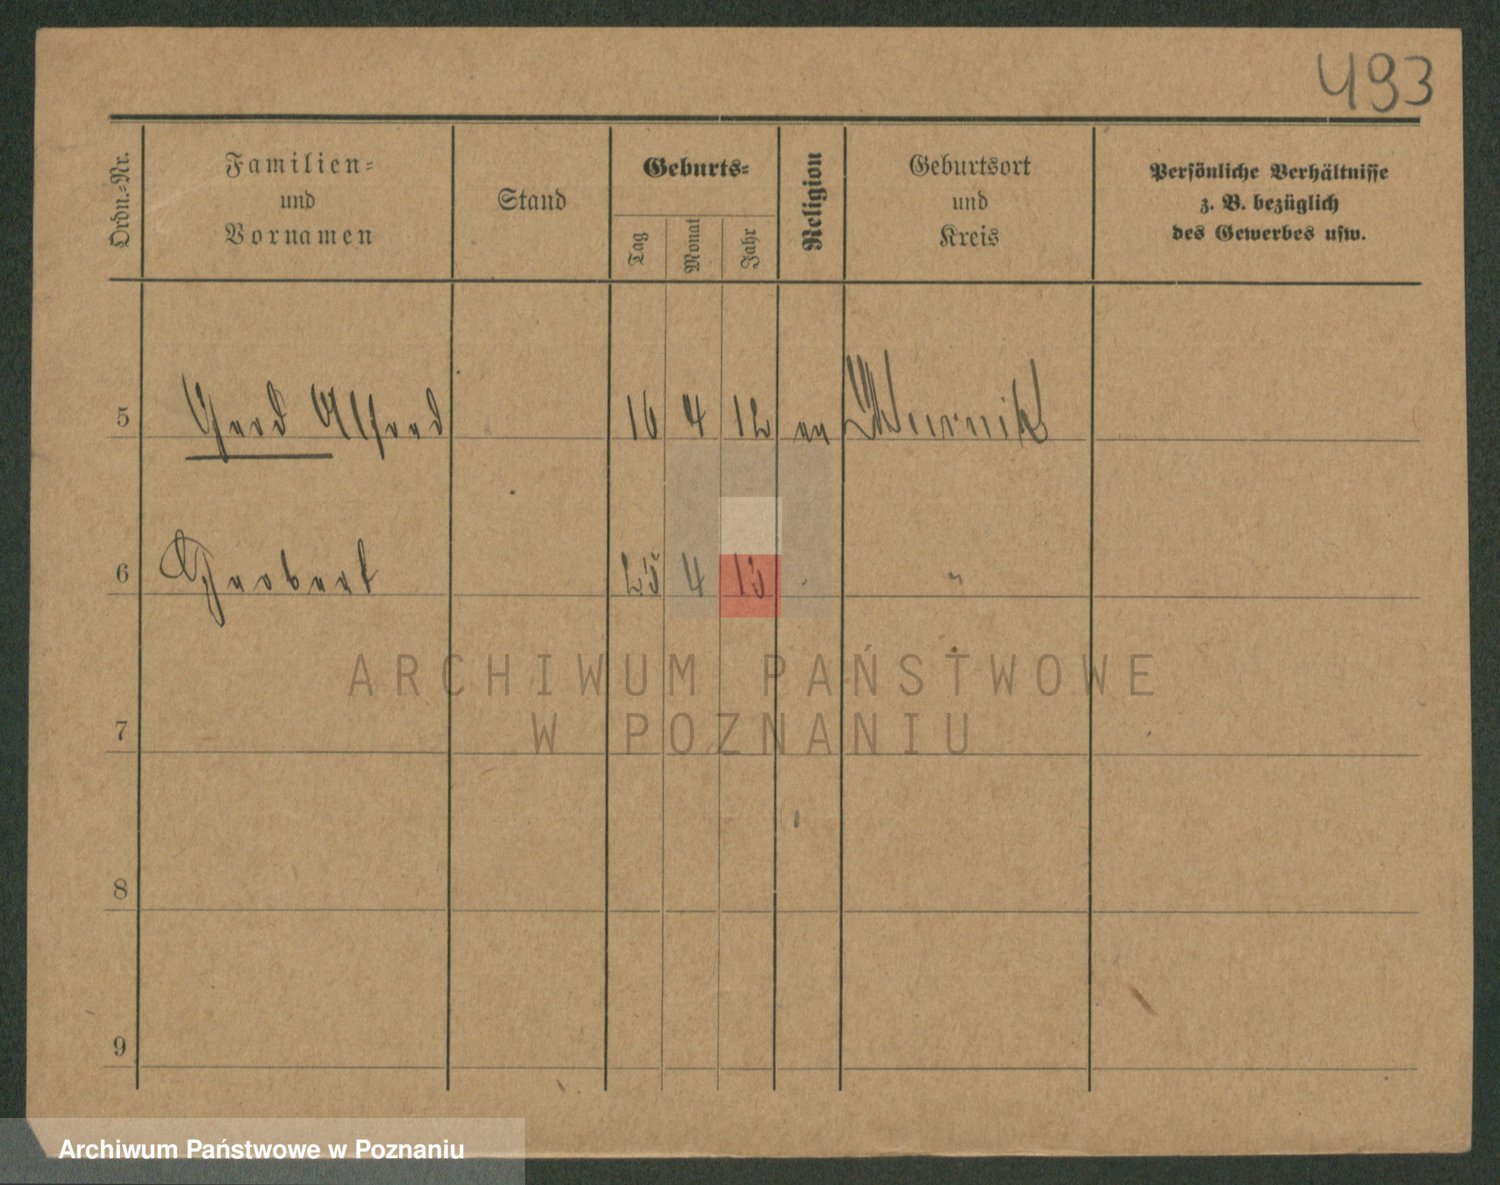 493
Ordn.=Nr.
Familien=
und
Vornamen
Stand
Geburts=
Tag
Monat
Jahr
Religion
Geburtsort
und
Kreis
Persönliche Verhältnisse
z. B. bezüglich
des Gewerbes usw.
5 Gerd Alfred 16 4 12 ev
6 Herbert 25 4 13 "
7
8
9
ARCHIWUM PAŃSTWOWE
W POZNANIU
Archiwum Państwowe w Poznaniu